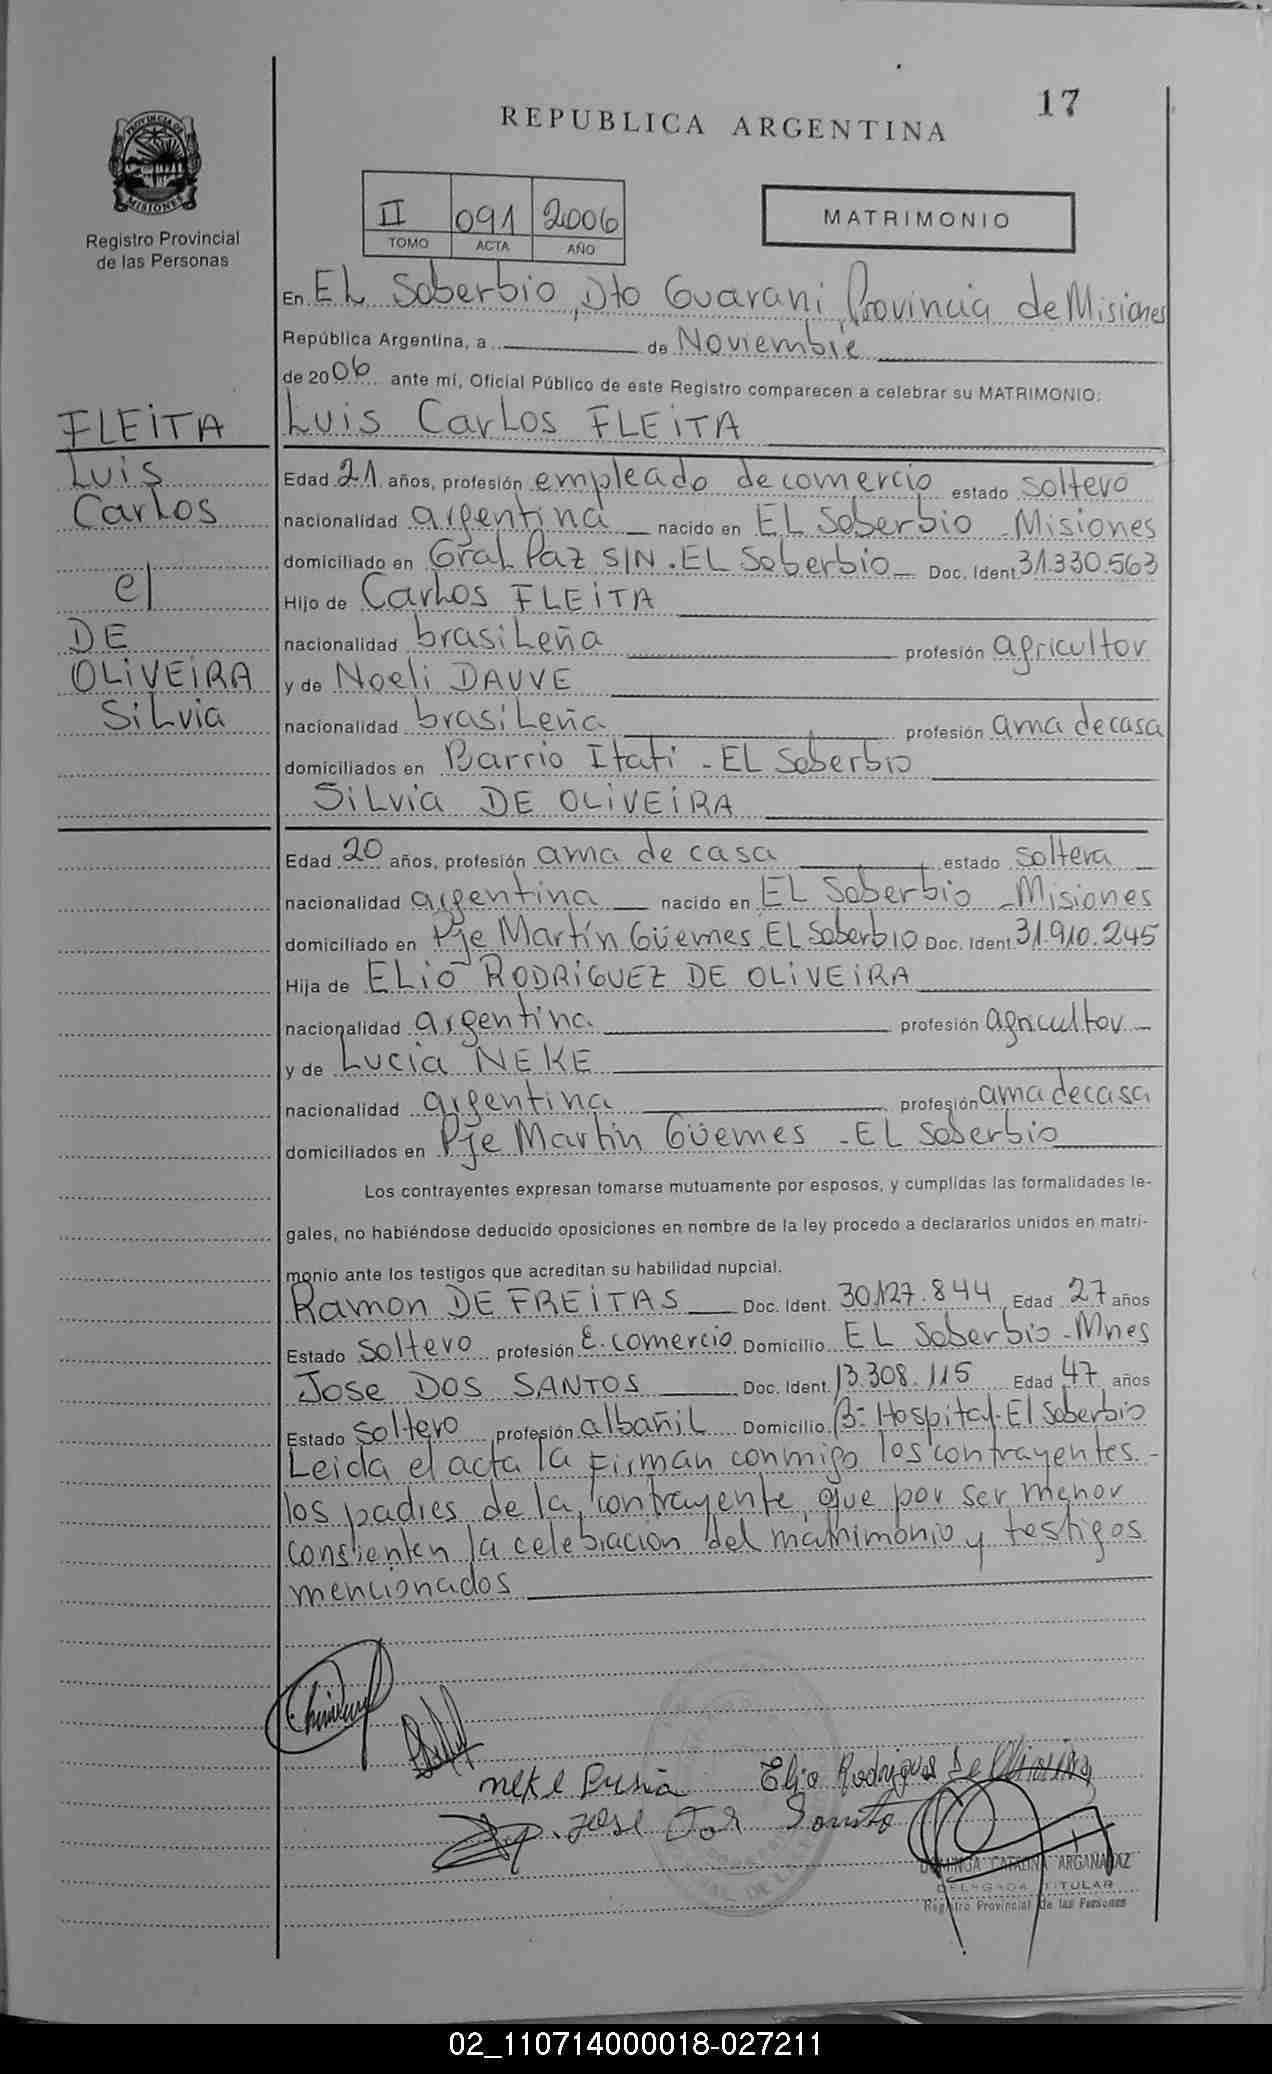 17
REPUBLICA ARGENTINA
PROVINCIA DE
MISIONES
Registro Provincial
de las Personas
II 091 2006
TOMO ACTA AÑO
MATRIMONIO
En EL Soberbio, Dto Guarani, Provincia de Misiones
República Argentina, a de Noviembre
de 2006 ante mí, Oficial Público de este Registro comparecen a celebrar su MATRIMONIO:
FLEITA
Luis
Carlos
el
DE
OLIVEIRA
Silvia
Luis Carlos FLEITA
Edad 21 años, profesión empleado de comercio estado soltero
nacionalidad argentina nacido en EL Soberbio - Misiones
domiciliado en Gral Paz S/N. EL Soberbio Doc. Ident. 31.330.563
Hijo de Carlos FLEITA
nacionalidad brasileña profesión agricultor
y de Noeli DAVVE
nacionalidad brasileña profesión ama de casa
domiciliados en Barrio Itati - EL Soberbio
Silvia DE OLIVEIRA
Edad 20 años, profesión ama de casa estado soltera
nacionalidad argentina nacido en EL Soberbio - Misiones
domiciliado en Pje Martín Güemes EL Soberbio Doc. Ident. 31.910.245
Hija de ELIO RODRIGUEZ DE OLIVEIRA
nacionalidad argentina profesión agricultor
y de Lucia NEKE
nacionalidad argentina profesión ama de casa
domiciliados en Pje Martin Güemes - EL Soberbio
Los contrayentes expresan tomarse mutuamente por esposos, y cumplidas las formalidades le-
gales, no habiéndose deducido oposiciones en nombre de la ley procedo a declararlos unidos en matri-
monio ante los testigos que acreditan su habilidad nupcial.
Ramon DE FREITAS Doc. Ident. 30.127.844 Edad 27 años
Estado soltero profesión E. comercio Domicilio EL Soberbio - Mnes
Jose DOS SANTOS Doc. Ident. 13.308.115 Edad 47 años
Estado soltero profesión albañil Domicilio Bº Hospital - El Soberbio
Leida el acta la Firman conmigo los contrayentes -
los padres de la contrayente que por ser menor
consienten la celebracion del matrimonio y testigos
mencionados
Elio Rodrigues De Oliveira
neke
Jose Dos Santos
DOMINGA CATALINA ARGANARAZ
DELEGADA TITULAR
Registro Provincial de las Personas
02_110714000018-027211